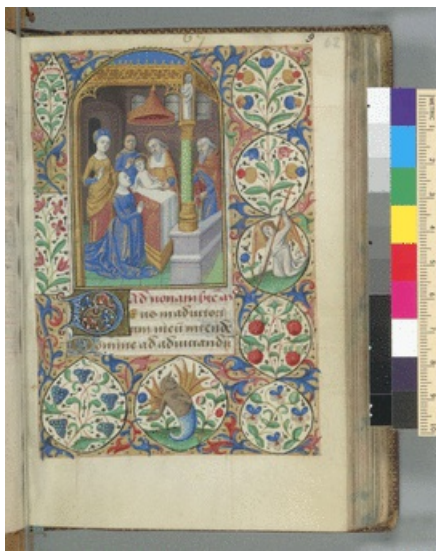 67
Ad nonam
Deus in adiutori
um meū intende
Domine ad adiuuandū